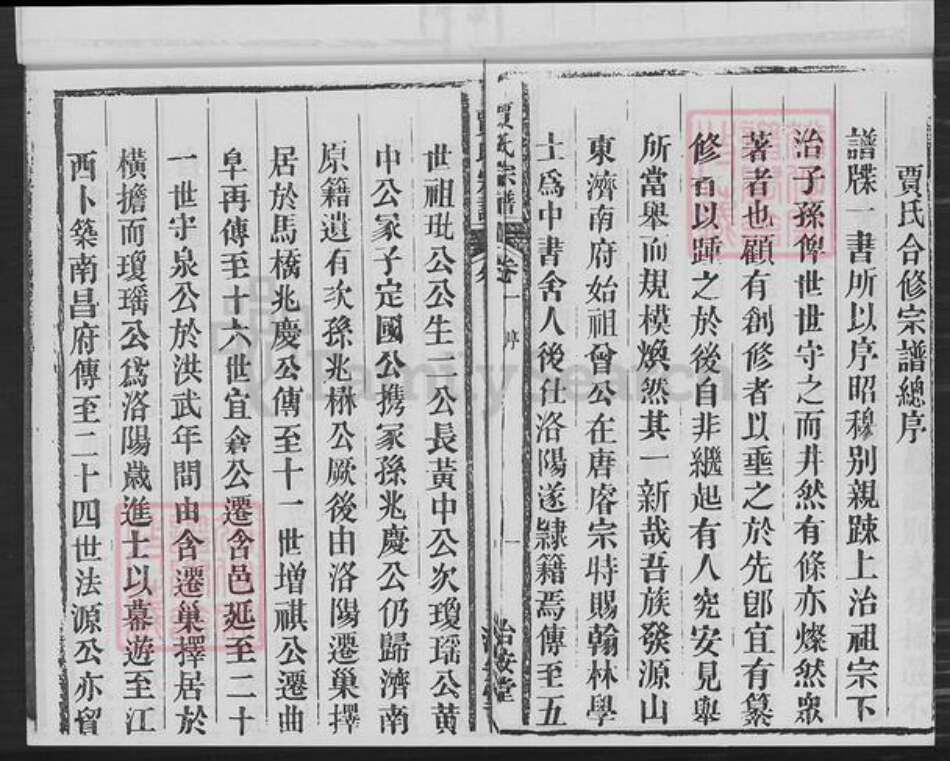 賈氏合修宗譜總序
譜牒一書所以序昭穆別親踈上治祖宗下
治子孫俾世世守之而井然有條亦燦然衆
著者也顧有創修者以垂之於先卽宜有纂
修者以踵之於後自非繼起有人究安見舉
所當舉而規模煥然其一新哉吾族發源山
東濟南府始祖曾公在唐睿宗時賜翰林學
士爲中書舍人後仕洛陽遂隸籍焉傳至五
賈氏宗譜 卷一 序 一 治安堂
世祖玭公公生三公長黃中公次瓊瑤公黃
中公冢子定國公携冢孫兆慶公仍歸濟南
原籍遺有次孫兆楙公厥後由洛陽遷巢擇
居於馬橋兆慶公傳至十一世增祺公遷曲
阜再傳至十六世宜倉公遷含邑延至二十
一世守泉公於洪武年間由含遷巢擇居於
橫擔而瓊瑤公爲洛陽歲進士以幕遊至江
西卜築南昌府傳至二十四世法源公亦畱